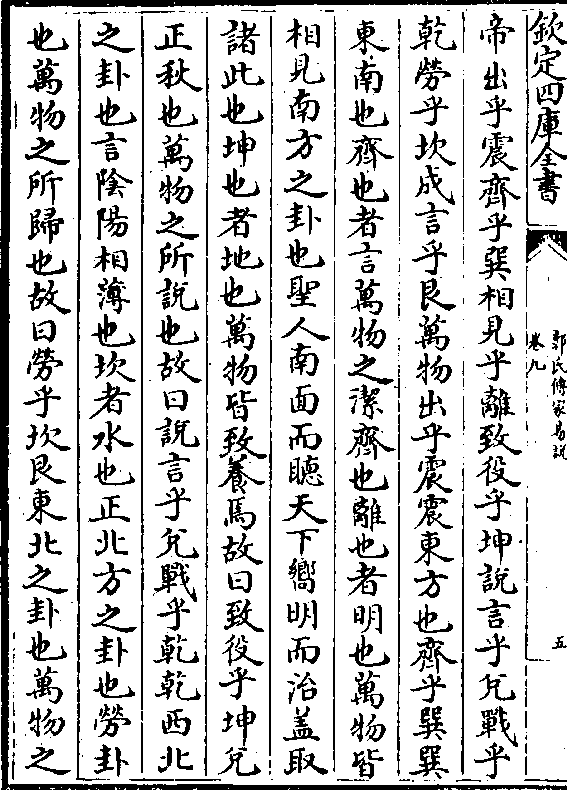 欽定四庫全書
郭氏傳家易說
卷九
五
帝出乎震齊乎巽相見乎離致役乎坤說言乎兌戰乎
乾勞乎坎成言乎艮萬物出乎震震東方也齊乎巽巽
東南也齊也者言萬物之潔齊也離也者明也萬物皆
相見南方之卦也聖人南面而聽天下嚮明而治蓋取
諸此也坤也者地也萬物皆致養焉故曰致役乎坤兌
正秋也萬物之所說也故曰說言乎兌戰乎乾乾西北
之卦也言陰陽相薄也坎者水也正北方之卦也勞卦
也萬物之所歸也故曰勞乎坎艮東北之卦也萬物之